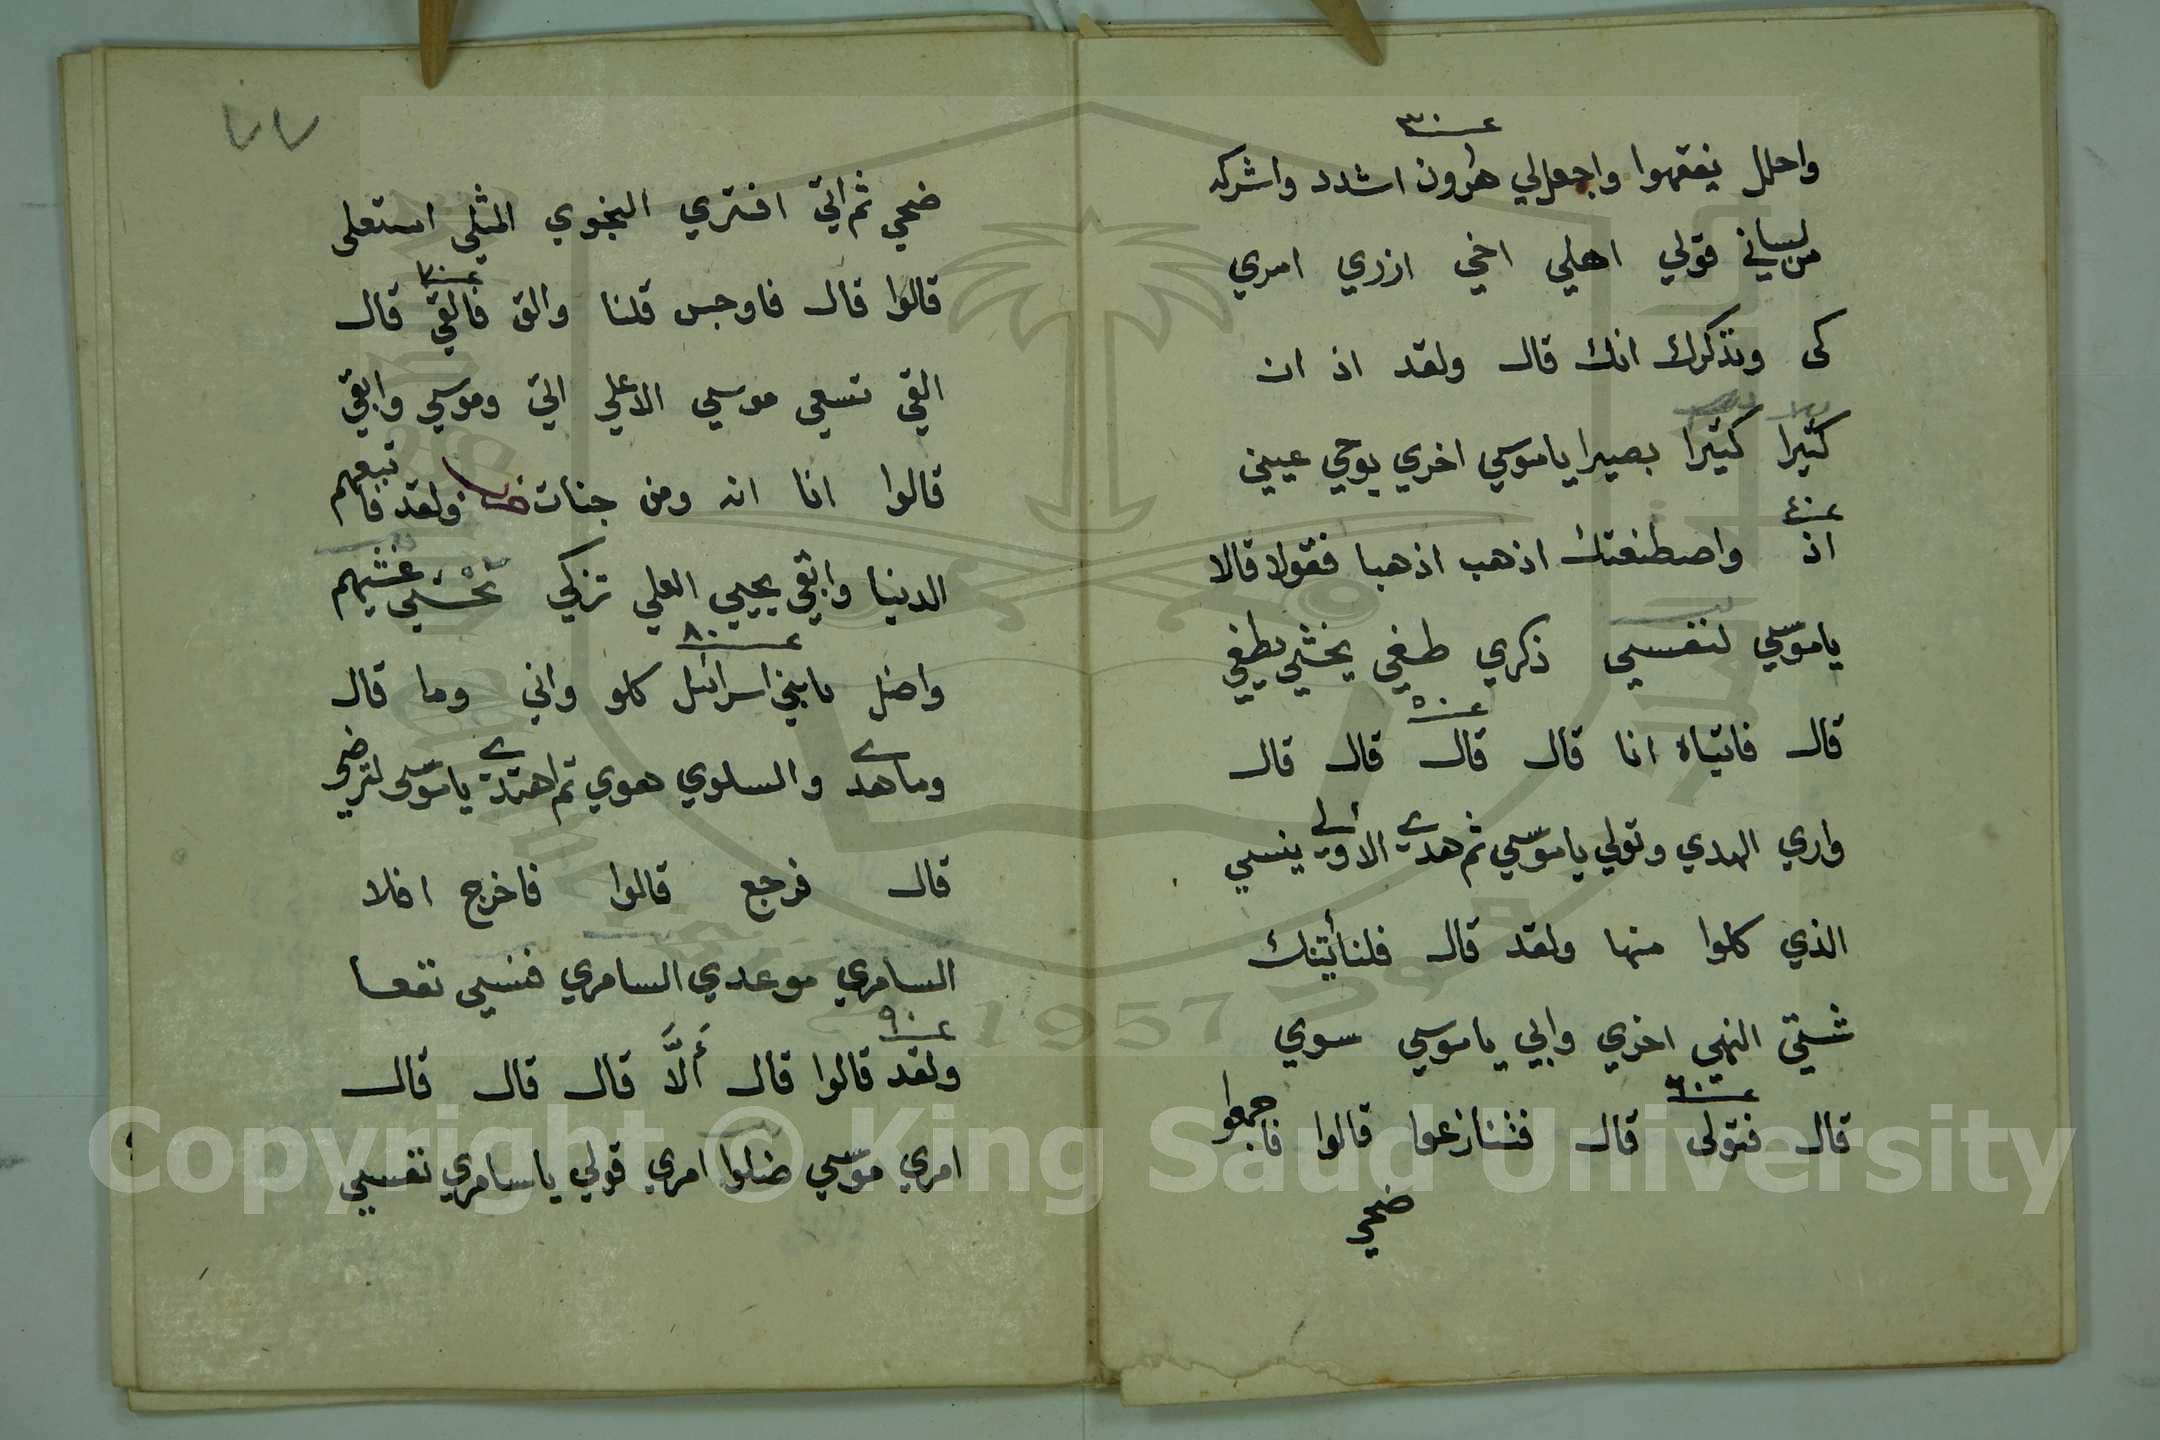 عـ ٣٠
واحلل يفقهوا واجعل لي هرون اشدد واشركه
من لساني قولي اهلي اخي ازري امري
كى ونذكرك انك قال ولقد اذ ان
كثيرا كثيرا بصيرا ياموسي اخري يوحي عيني
عـ ٤٠
اذ واصطنعتك اذهب اذهبا فقولا قالا
ياموسي لنفسي ذكري طغي يخشي يطغي
عـ ٥٠
قال فاتياه انا قال قال قال قال
واري الهدي وتولي ياموسي ثم هدي الاولي ينسي
الذي كلوا منها ولقد قال فلنأتينك
شتي النهي اخري وابي ياموسي سوي
عـ ٦٠
قال فتولى قال فتنازعوا قالوا فاجمعوا
ضحي
٧٧
ضحي ثم اتي افتري النجوي المثلي استعلى
عـ ٧٠
قالوا قال فاوجس قلنا والق فالقي قال
القي تسعي موسي الاعلي اتي وموسي وابقي
قالوا انا انه ومن جنات ولقد فاتبعهم
الدنيا وابقي يحيي العلي تزكي تخشي غشيهم
عـ ٨٠
واضل يابني اسرائل كلو واني وما قال
وما هدي والسلوي هوي ثم اهتدي ياموسى لترضي
قال فرجع قالوا فاخرج افلا
السامري موعدي السامري فنسي نفعا
عـ ٩٠
ولقد قالوا قال ألَّا قال قال قال
امري موسي ضلوا امري قولي ياسامري نفسي
Copyright © King Saud University
1957